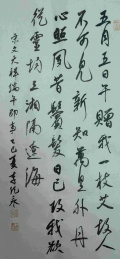 五月五日午赠我一枝艾故人
不可见新知万里外丹
心照夙昔鬓发日已改我欲
从灵均三湘隔辽海
宋文天祥端午即事